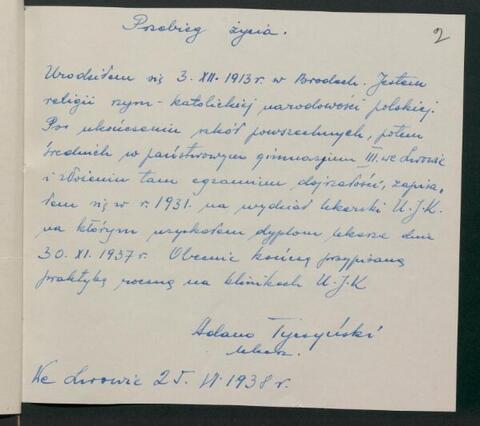 Przebieg życia.
2
Urodziłem się 3. XII. 1913 r. w Brodach. Jestem
religii rzym-katolickiej narodowości polskiej.
Po ukończeniu szkół powszechnych, potem
średnich w państwowym gimnazjum III. we Lwowie
i złożeniu tam egzaminu dojrzałości, zapisa,
łem się w r. 1931. na wydział lekarski U.J.K.
na którym uzyskałem dyplom lekarza dnia
30. XI. 1937 r. Obecnie kończę przypisaną
praktykę roczną na klinikach U.J.K
Adam Tyszyński
lekarz.
We Lwowie 25. VI. 1938 r.